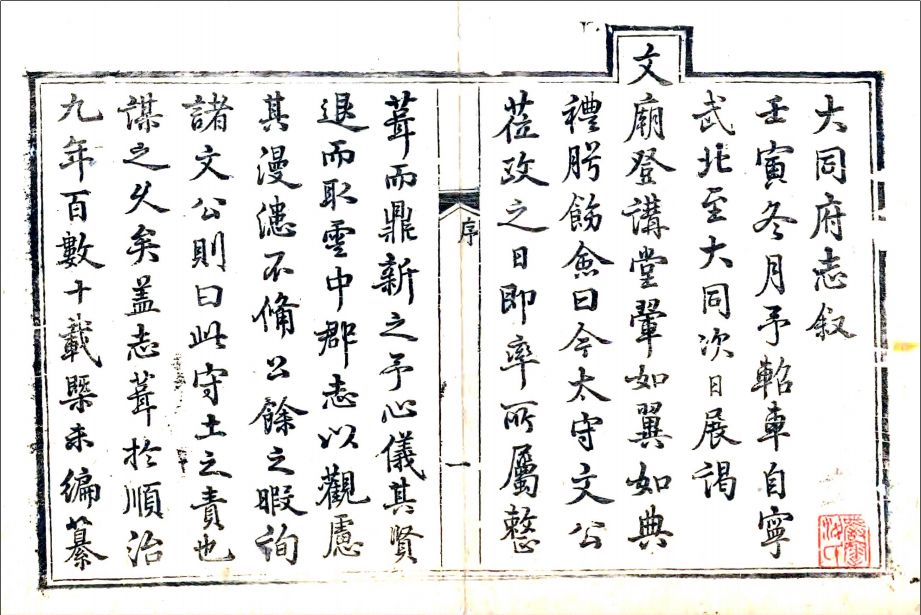 大同府志叙
壬寅冬月予軺車自寧
武北至大同次日展謁
文
廟登講堂翬如翼如典
禮䏿飭僉曰今太守文公
莅政之日即率所屬整
序
一
葺而鼎新之予心儀其賢
退而取雲中郡志以觀慮
其漫漶不備公餘之暇詢
諸文公則曰此守土之責也
謀之久矣蓋志葺於順治
九年百數十載槩未編纂